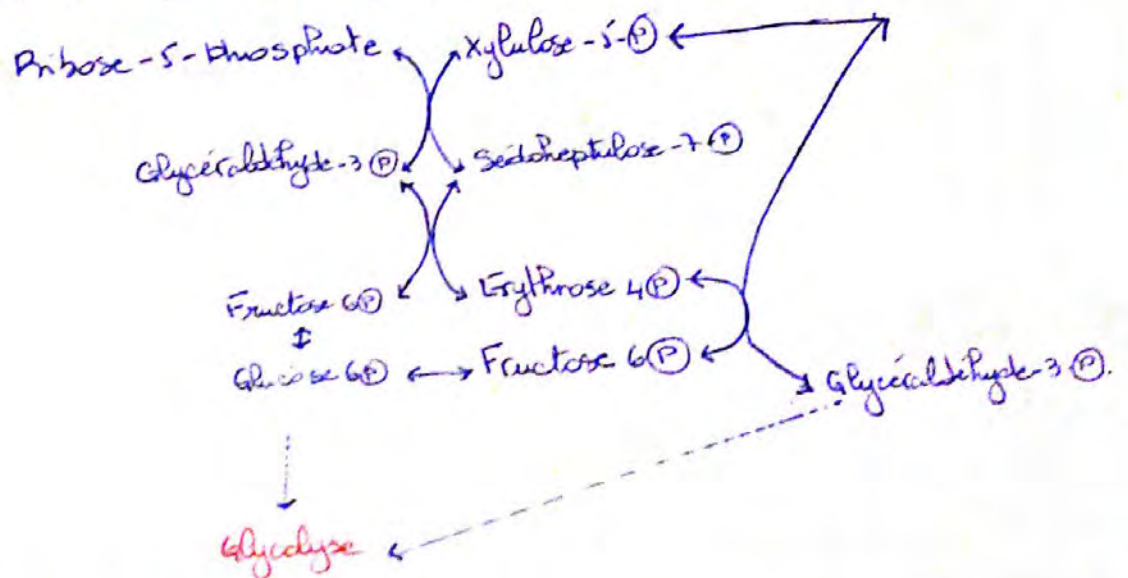 Ribose-5-Phosphate Xylulose-5-Ⓟ
Glycéraldéhyde-3 Ⓟ Sédoheptulose-7 Ⓟ
Fructose 6Ⓟ Erythrose 4Ⓟ
Glucose 6Ⓟ Fructose 6Ⓟ Glycéraldéhyde-3 Ⓟ.
Glycolyse